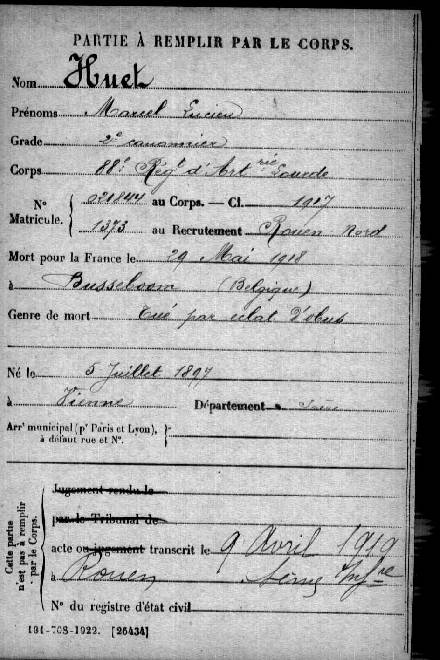 PARTIE À REMPLIR PAR LE CORPS.
Nom Huet
Prénoms Marcel Lucien
Grade 2e canonnier
Corps 88e Régt d'Artrie Lourde
N° Matricule. 021844 au Corps. — Cl. 1917
1373 au Recrutement Rouen Nord
Mort pour la France le 29 Mai 1918
à Busseboom (Belgique)
Genre de mort Tué par éclat d'obus
Né le 5 Juillet 1897
à Vienne Département Isère
Arrt municipal (pr Paris et Lyon),
à défaut rue et N°.
Cette partie n'est pas à remplir par le Corps.
Jugement rendu le
par le Tribunal de
acte ou jugement transcrit le 9 Avril 1919
à Rouen Seine Infre
N° du registre d'état civil
191-708-1922. [26434]